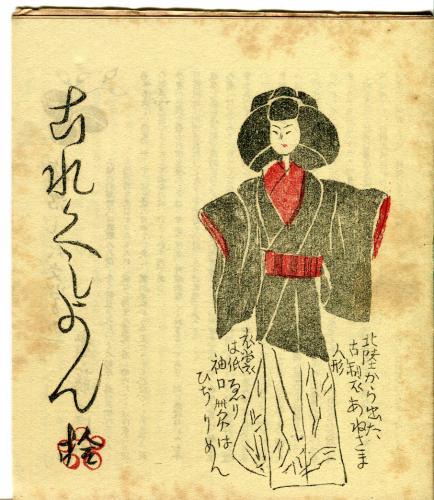 北陸から出た、
古製あねさま
人形
衣裳
は紙 ゑり
袖口 帯は
ひぢりめん
古れくしよん 拾